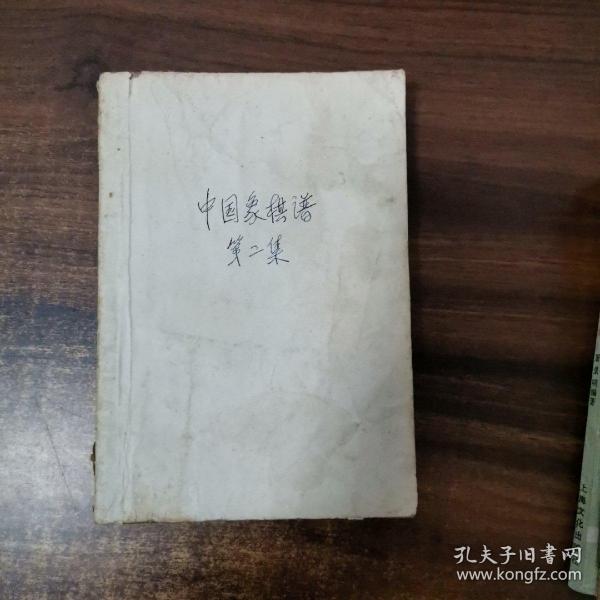 中国象棋谱
第二集
编著
上海文化出
孔夫子旧书网
www.kongfz.com